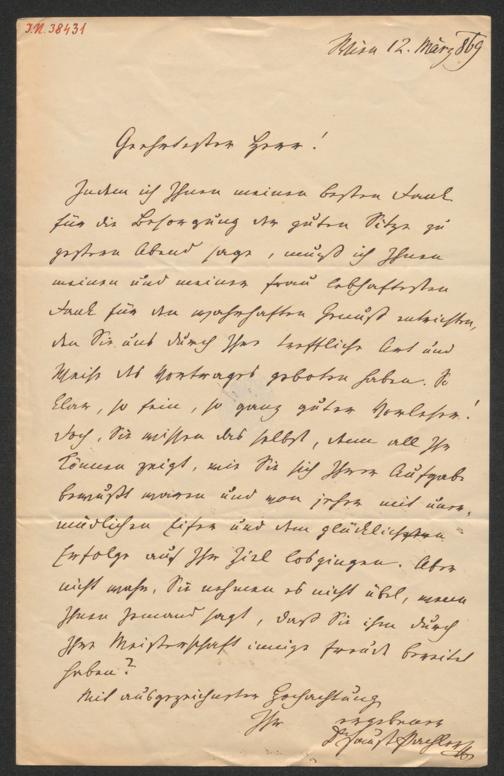 I.N. 38431
Wien 12. März 869
Geehrtester Herr!
Indem ich Ihnen meinen besten Dank
für die Besorgung der guten Sitze zu
gestern Abend sage, muß ich Ihnen
meinen und meiner Frau lebhaftesten
Dank für den wahrhaften Genuß entrichten,
den Sie uns durch Ihre treffliche Art und
Weise des Vortrages geboten haben. So
klar, so fein, so ganz guter Vorleser!
Doch, Sie wissen das selbst, denn all Ihr
Können zeigt, wie Sie sich Ihrer Aufgabe
bewußt waren und von jeher mit uner-
müdlichen Eifer und dem glücklichsten
Erfolge auf Ihr Ziel losgingen. Aber
nicht wahr, Sie nehmen es nicht übel, wenn
Ihnen Jemand sagt, daß Sie ihm durch
Ihre Meisterschaft innige Freude bereitet
haben?
Mit ausgezeichneter Hochachtung
Ihr ergebener
Dr Faust Pachler